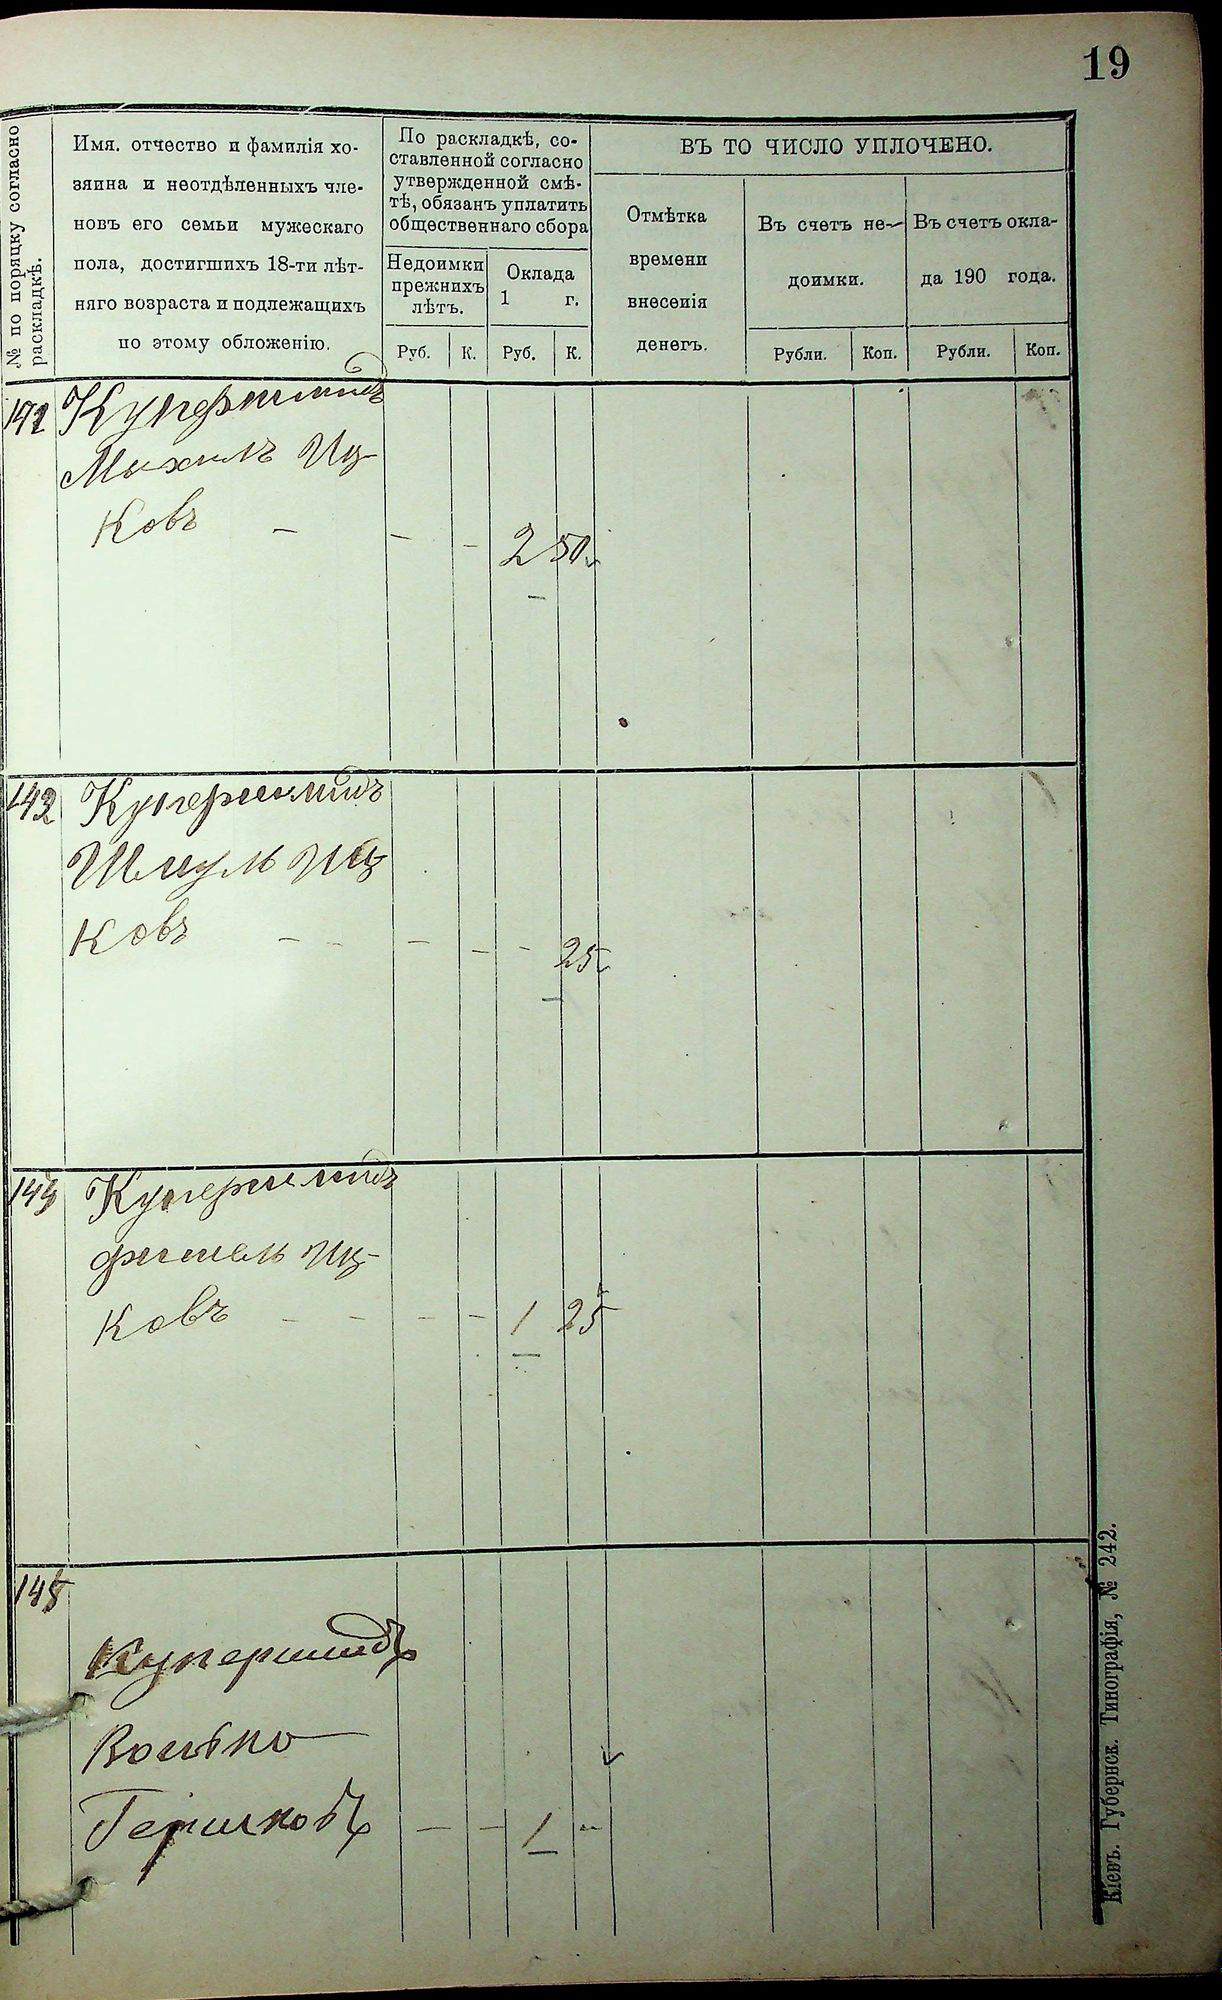 19
№ по порядку согласно
раскладкѣ.
Имя. отчество и фамилія хо-
зяина и неотдѣленныхъ чле-
новъ его семьи мужескаго
пола, достигшихъ 18-ти лѣт-
няго возраста и подлежащихъ
по этому обложенію.
По раскладкѣ, со-
ставленной согласно
утвержденной смѣ-
тѣ, обязанъ уплатить
общественнаго сбора
Недоимки
прежнихъ
лѣтъ.
Оклада
1 г.
Руб. К. Руб. К.
ВЪ ТО ЧИСЛО УПЛОЧЕНО.
Отмѣтка
времени
внесенія
денегъ.
Въ счетъ не-
доимки.
Въ счетъ окла-
да 190 года.
Рубли. Коп. Рубли. Коп.
Купершмидъ
Михиль Иц-
ковъ — — — 2 50
142 Купершмидъ
Шмуль Иц-
ковъ — — — — — 25
Купершмидъ
Фишель Иц-
ковъ — — — — 1 25
145
Купершмидъ
Волько
Гершковъ — — 1 "
Кіевъ. Губернск. Типографія, № 242.